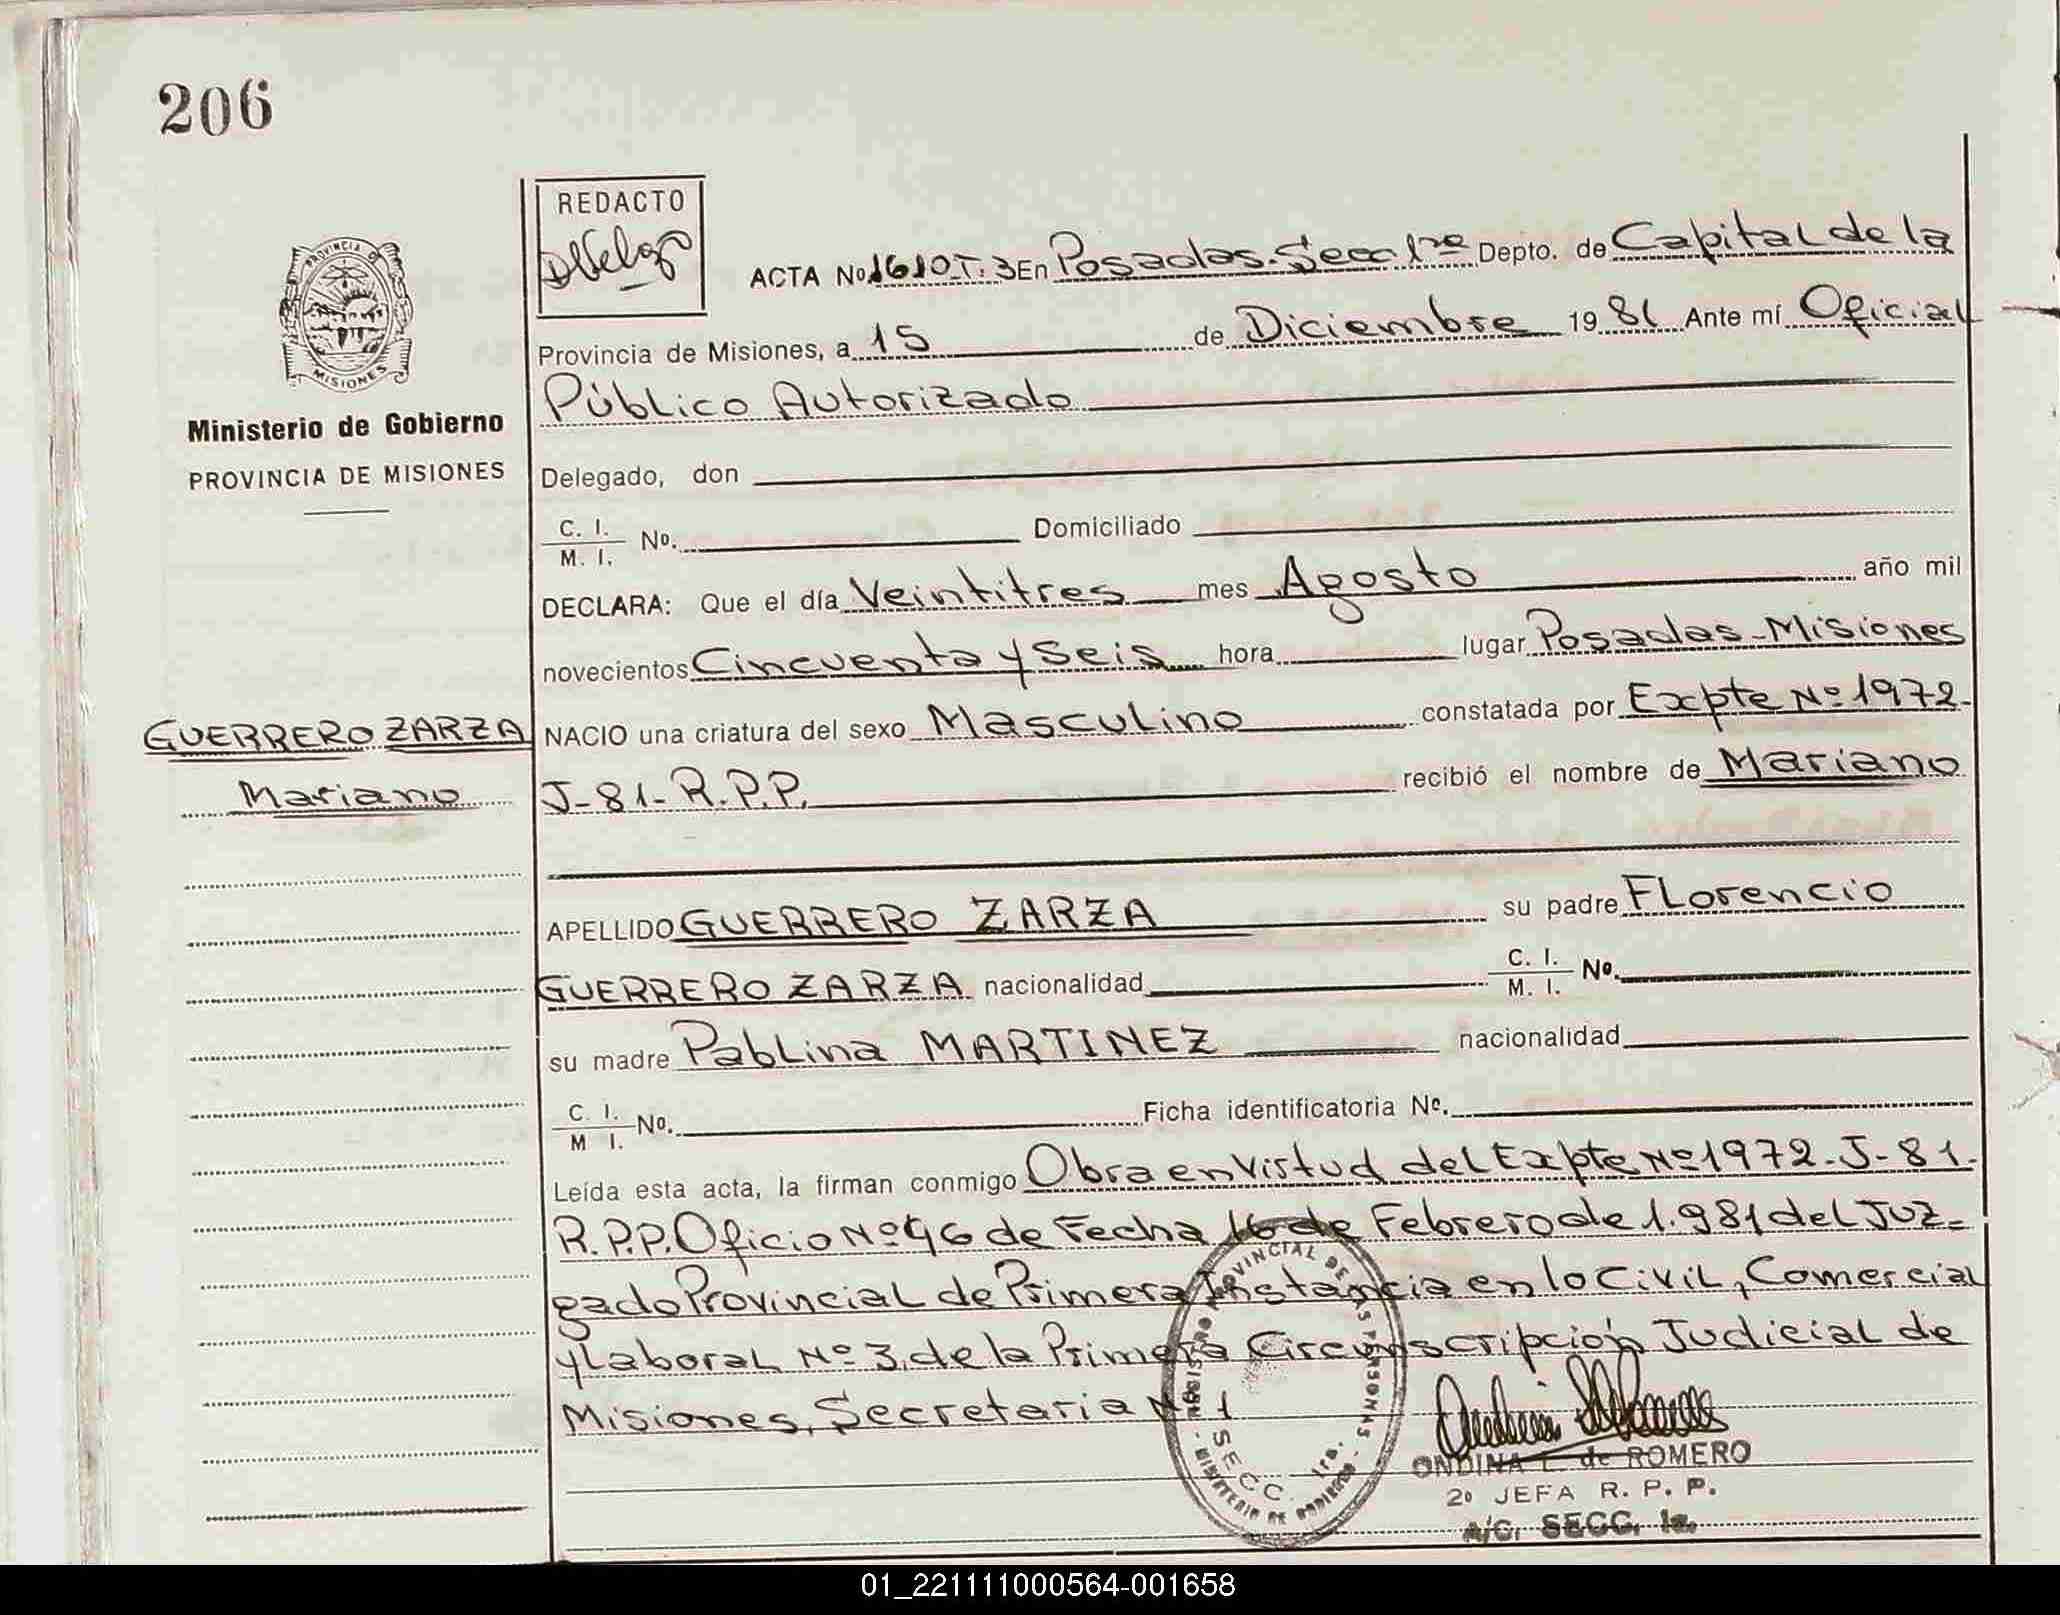 206
REDACTO
ACTA No 1610 T. 3 En Posadas. Secc 1ra Depto. de Capital de la
Provincia de Misiones, a 15 de Diciembre 19 81 Ante mí Oficial
Público Autorizado
PROVINCIA DE
MISIONES
Ministerio de Gobierno
PROVINCIA DE MISIONES
Delegado, don
C. I.
M. I. No. Domiciliado
DECLARA: Que el día Veintitres mes Agosto año mil
novecientos Cincuenta y Seis hora lugar Posadas - Misiones
GUERRERO ZARZA
Mariano
NACIO una criatura del sexo Masculino constatada por Expte Nº 1972-
J-81- R.P.P. recibió el nombre de Mariano
APELLIDO GUERRERO ZARZA su padre Florencio
GUERRERO ZARZA nacionalidad C. I. M. I. No.
su madre Pablina MARTINEZ nacionalidad
C. I. M I. No. Ficha identificatoria No.
Leída esta acta, la firman conmigo Obra en Virtud del Expte Nº 1972-J-81.
R.P.P. Oficio Nº 46 de Fecha 16 de Febrero de 1.981 del Juz-
gado Provincial de Primera Instancia en lo Civil, Comercial
y Laboral Nº 3, de la Primera Circunscripción Judicial de
Misiones, Secretaria Nº 1
REGISTRO PROVINCIAL DE LAS PERSONAS - MINISTERIO DE GOBIERNO -
SECC. 1ra.
ONDINA L. de ROMERO
2º JEFA R. P. P.
A/C. SECC. 1a.
01_221111000564-001658